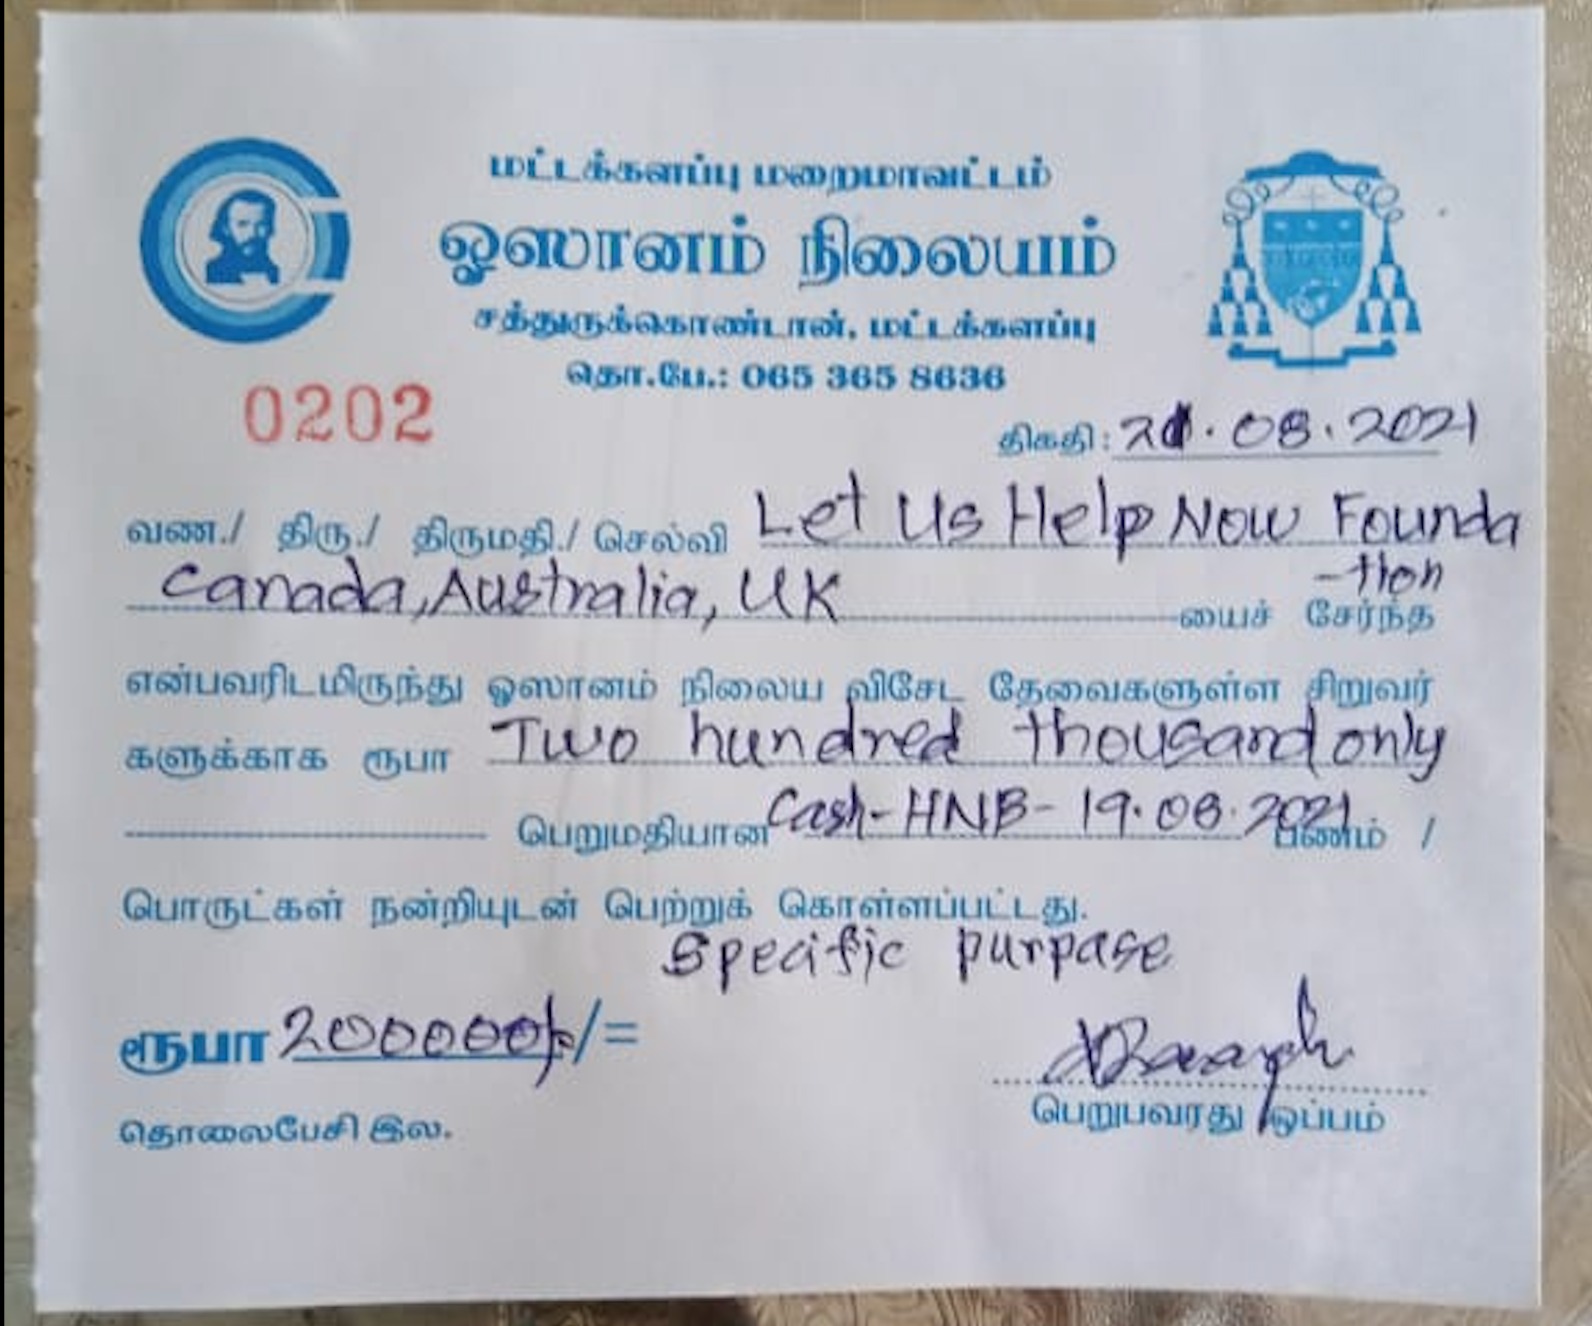 மட்டக்களப்பு மறைமாவட்டம்
ஓஸானம் நிலையம்
சத்துருக்கொண்டான், மட்டக்களப்பு
தொ.பே.: 065 365 8636
0202
திகதி: 21.08.2021
வண./ திரு./ திருமதி./ செல்வி Let Us Help Now Founda
-tion
Canada, Australia, UK யைச் சேர்ந்த
என்பவரிடமிருந்து ஓஸானம் நிலைய விசேட தேவைகளுள்ள சிறுவர்
களுக்காக ரூபா Two hundred thousand only
பெறுமதியான Cash-HNB-19.08.2021 பணம் /
பொருட்கள் நன்றியுடன் பெற்றுக் கொள்ளப்பட்டது.
Specific purpase
ரூபா 200000/= /=
தொலைபேசி இல.
பெறுபவரது ஒப்பம்